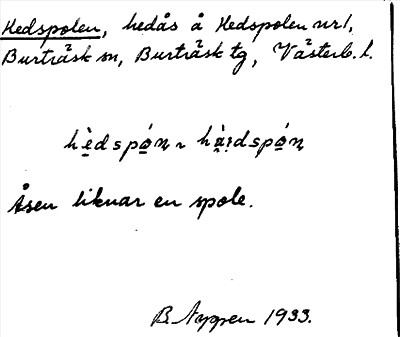 Hedspolen, hedås å Hedspolen nr 1,
Burträsk sn, Burträsk tg, Västerb. l.
hè̱dspó̱ṇ ~ hà̱i̯dspó̱ṇ
Åsen liknar en spole.
B. Aggen 1933.